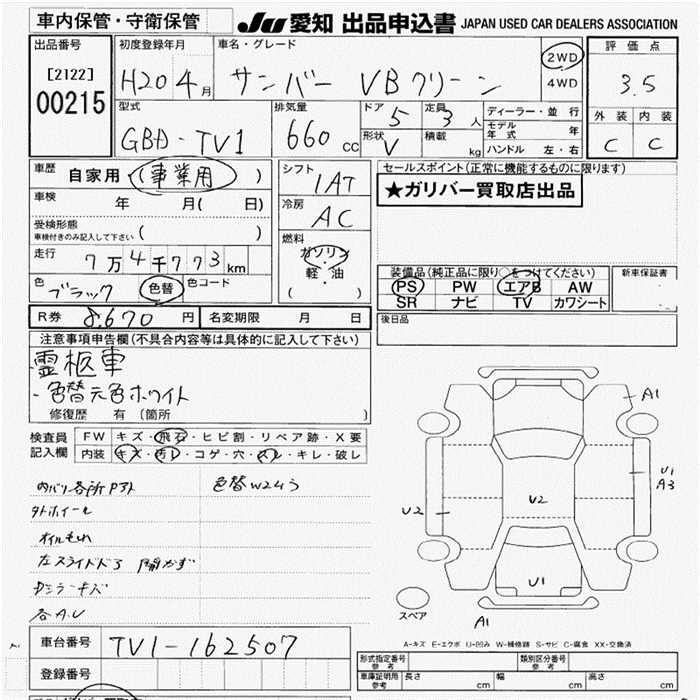 車内保管・守衛保管
JU 愛知 出品申込書 JAPAN USED CAR DEALERS ASSOCIATION
出品番号
[2122]
00215
初度登録年月
H20 4月
車名・グレード
サンバー VBクリーン
2WD
4WD
評価点
3.5
外装 内装
C C
型式
GBD-TV1
排気量
660 cc
ドア 5
定員 3 人
形状 V
積載 kg
ディーラー・並行
モデル年式 年
ハンドル 左・右
車歴 自家用・(事業用)
車検 年 月( 日)
受検形態
車検付きのみ記入して下さい ( )
走行 7万4千773km
色 ブラック
色替
色コード
シフト
1AT
冷房
AC
燃料
ガソリン
軽・油
( )
セールスポイント(正常に機能するものに限ります)
★ガリバー買取店出品
装備品(純正品に限り○をつけてください)
PS PW エアB AW
SR ナビ TV カワシート
新車保証書
R券 8,670円
名変期限 月 日
後日品
注意事項申告欄(不具合内容等は具体的に記入して下さい)
霊柩車
・色替元色ホワイト
修復歴 有 (箇所 )
検査員記入欄
FW キズ・飛石・ヒビ割・リペア跡・X要
内装 キズ・汚レ・コゲ・穴・スレ・キレ・破レ
内バリ各所Pアト
色替W24う
外ホイール
オイルもれ
左スライドドア 開かず
Dミラーキズ
各A.U
A1
U1
A3
U2
U2
U1
A1
スペア
A-キズ E-エクボ U-凹み W-補修跡 S-サビ C-腐食 XX-交換済
車台番号 TV1-162507
登録番号
形式指定番号 参考
類別区分番号 参考
車庫証明用 参考
長さ cm
幅 cm
高さ cm